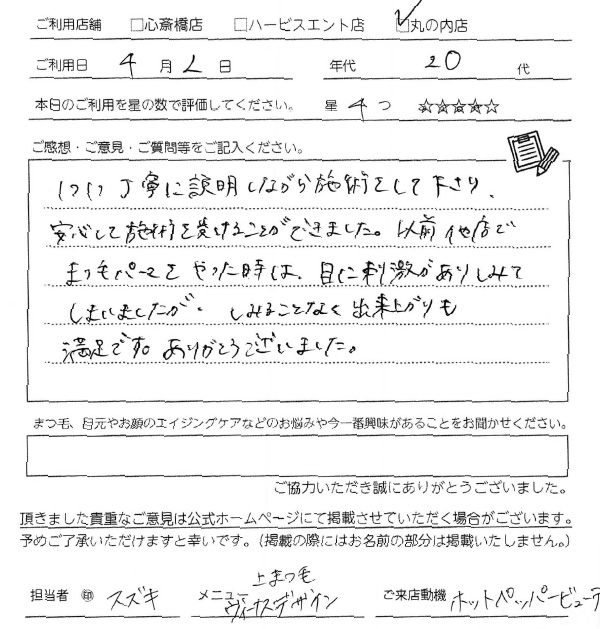 ご利用店舗 □心斎橋店 □ハービスエント店 ☑丸の内店
ご利用日 4 月 2 日 年代 20 代
本日のご利用を星の数で評価してください。 星 4 つ ☆☆☆☆☆
ご感想・ご意見・ご質問等をご記入ください。
1つ1つ丁寧に説明しながら施術をして下さり、
安心して施術を受けることができました。以前他店で
まつ毛パーマをやった時は、目に刺激がありしみて
しまいましたが、しみることなく出来上がりも
満足です。ありがとうございました。
まつ毛、目元やお顔のエイジングケアなどのお悩みや今一番興味があることをお聞かせください。
ご協力いただき誠にありがとうございました。
頂きました貴重なご意見は公式ホームページにて掲載させていただく場合がございます。
予めご了承いただけますと幸いです。（掲載の際にはお名前の部分は掲載いたしません。）
担当者 ㊞ スズキ メニュー 上まつ毛 ヴィーナスデザイン ご来店動機 ホットペッパービューテ